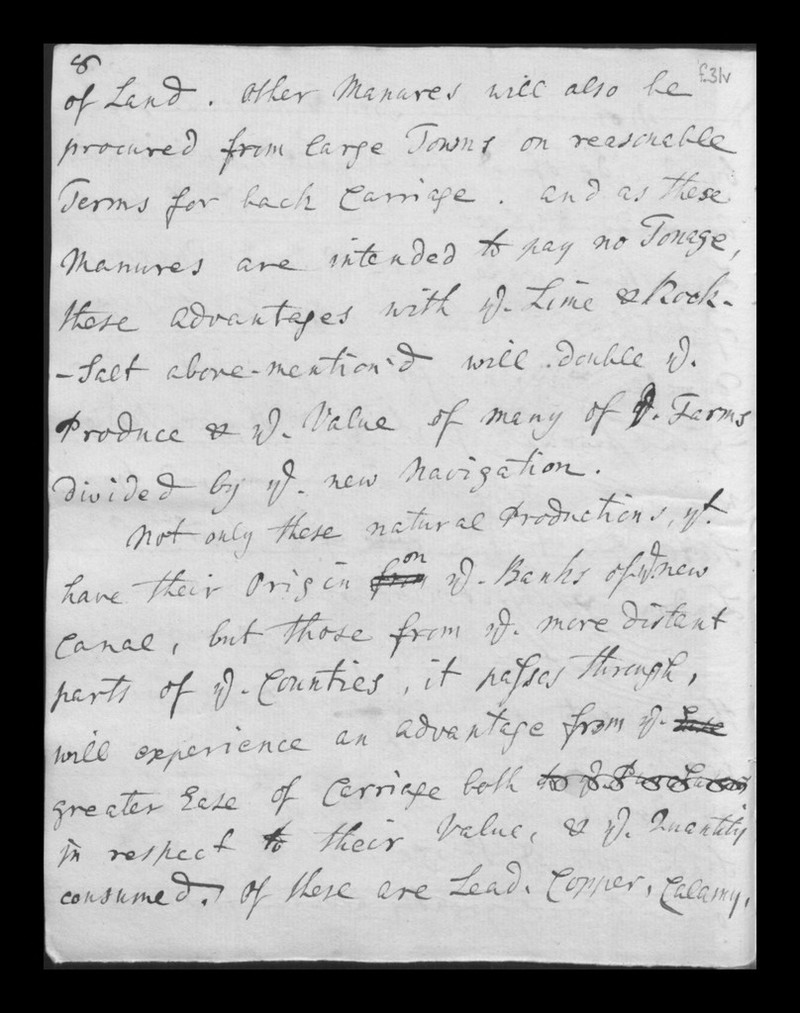 8
f.31v
of Land. other Manures will also be
procured from large Towns on reasonable
Terms for back Carriage. and as these
Manures are intended to pay no Tonage,
these advantages with ye. Lime & Rock-
-Salt above-mention'd will double ye.
Produce & ye. Value of many of ye. Farms
divided by ye. new Navigation.
Not only these natural Productions, yt.
have their Origin from on ye. Banks of ye. new
Canal, but those from ye. more distant
parts of ye. Counties, it passes through,
will experience an advantage from ye. Ease
greater Ease of Carriage both
in respect to their Value, & ye. Quantity
consumed. Of these are Lead. Copper, Calamy,